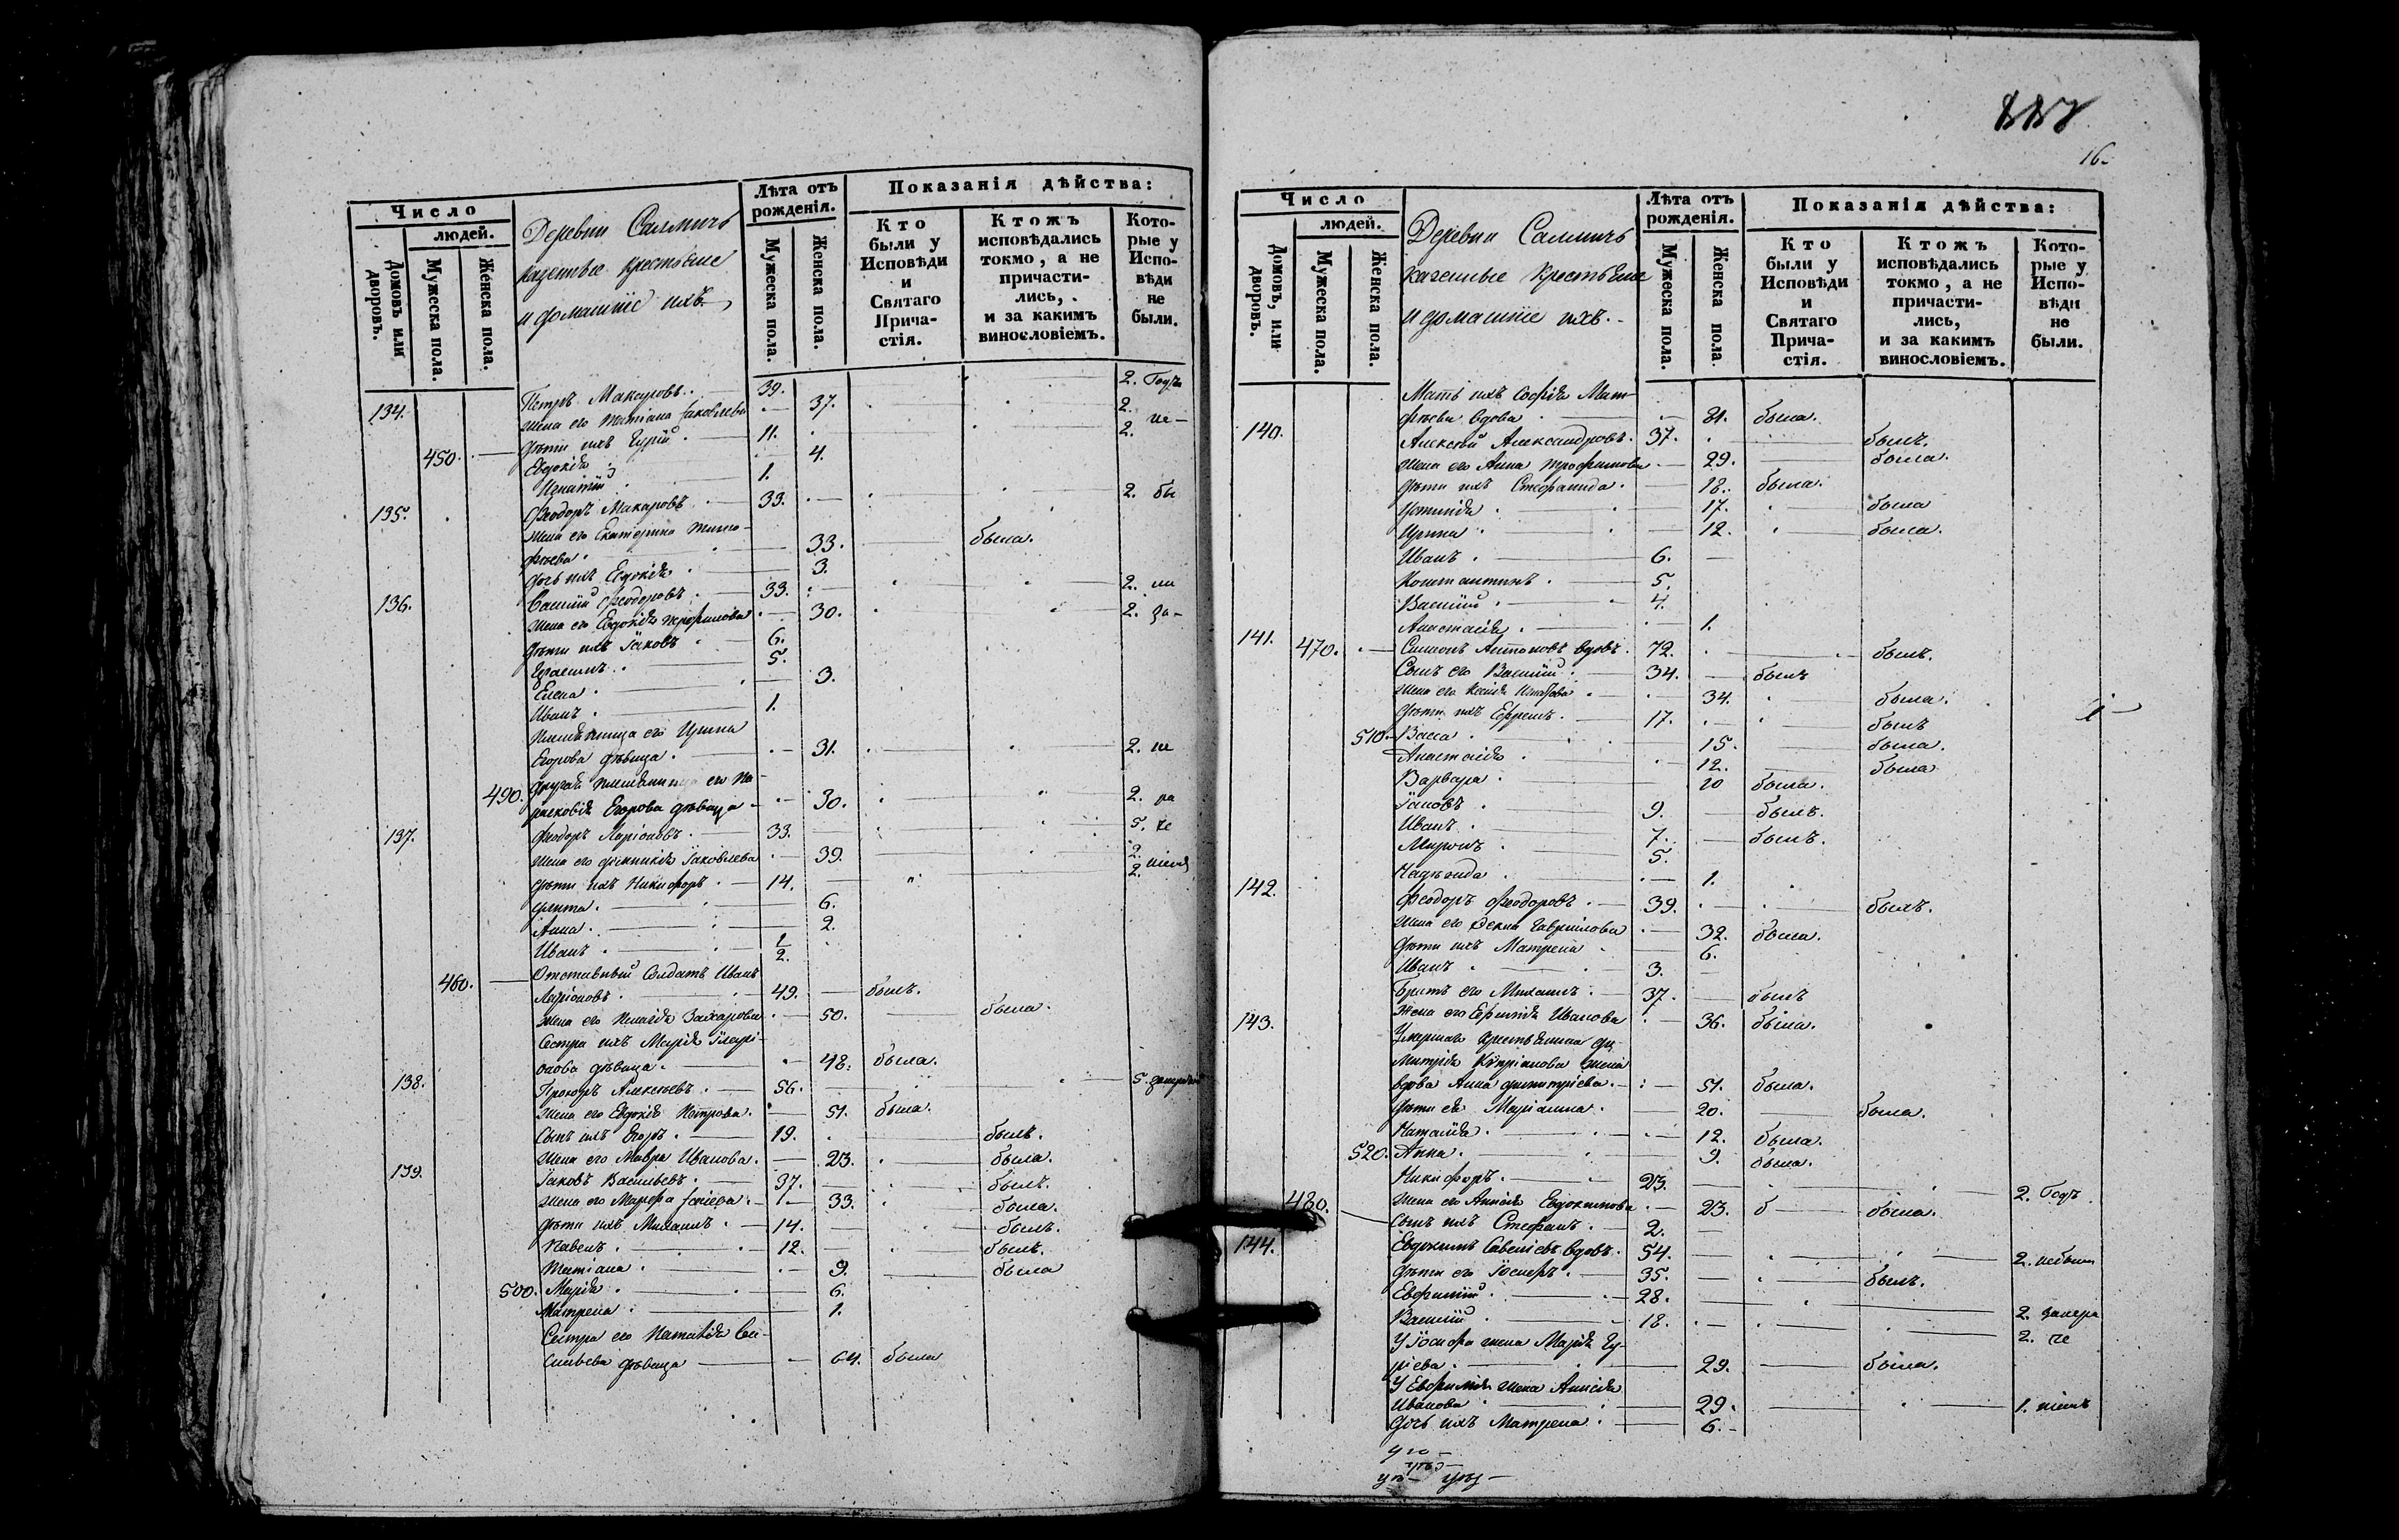 Число
людей.
Домовъ или дворовъ.
Мужеска пола.
Женска пола.
Деревни Салмичъ
казенные крестьяне
и домашніе ихъ
Лѣта отъ рожденія.
Мужеска пола.
Женска пола.
Показанія дѣйства:
Кто были у Исповѣди и Святаго Причастія.
Ктожъ исповѣдались токмо, а не причастились, и за какимъ винословіемъ.
Которые у Исповѣди не были.
134. Петръ Макаровъ. 39. 2. Годъ
жена его Татіана Іаковлева 37. 2. не
дѣти ихъ Гурій 11. 2.
450. Евдокія 4.
Игнатій 1.
135. Ѳеодоръ Макаровъ 33. 2. бы
жена его Екатерина Тимо-
фѣева 33. была.
дочь ихъ Евдокія 3.
136. Василій Ѳеодоровъ 33. 2.
жена его Евдокія Трофимова 30. 2. за-
дѣти ихъ Іаковъ 6.
Герасимъ 5.
Елена 3.
Иванъ 1.
Племянница его Ирина
Егорова дѣвица 31. 2. не
490. другая племянница его Па-
расковія Егорова дѣвица 30. 2. ра
137. Ѳеодоръ Ларіоновъ 33. 5. че
жена его Домникія Іаковлева 39. 2.
дѣти ихъ Никифоръ 14. 2. ніемъ
6.
Анна 2.
Иванъ 1/2.
460. Отставный Солдатъ Иванъ
Ларіоновъ 49. былъ.
жена его Пелагія Захарова 50. была.
Сестра ихъ Марія Іларі-
онова дѣвица 48. была.
138. Прохоръ Алексѣевъ 56. 5.
жена его Евдокія Петрова. 51. была.
Сынъ ихъ Егоръ 19. былъ.
жена его Мавра Иванова. 23. была.
139. Іаковъ Васильевъ 37. былъ.
жена его Марфа 33. была.
дѣти ихъ Михаилъ 14. былъ.
Павелъ 12. былъ.
Татіана 9. была
500. Марія 6.
Матрена 1.
Сестра его Наталія Ва-
сильева дѣвица 64. была
16.
Число
людей.
Домовъ, или дворовъ.
Мужеска пола.
Женска пола.
Деревни Салмичъ
казенные крестьяне
и домашніе ихъ.
Лѣта отъ рожденія.
Мужеска пола
Женска пола.
Показанія дѣйства:
Кто были у Исповѣди и Святаго Причастія.
Ктожъ исповѣдались токмо, а не причастились, и за какимъ винословіемъ.
Которые у Исповѣди не были.
Мать ихъ Софія Мат-
фѣева вдова 81. была.
140. Алексѣй Александровъ. 37. былъ.
жена его Анна Трофимова 29. была.
дѣти ихъ Стефанида. 18. была.
Устинія 17. была
Ирина 12. была.
Иванъ 6.
Константинъ 5.
Василій 4.
Анастасія 1.
141. 470. Симонъ Антоновъ вдовъ. 72. былъ.
Сынъ его Василій 34. былъ
жена его Ксенія Игнатова 34. была.
дѣти ихъ Ефремъ 17. былъ
510. Васса 15. была.
Анастасія 12. была
Варвара 10 была.
Іаковъ 9. былъ.
Иванъ 7. былъ.
Миронъ 5.
Надежда 1.
142. Ѳеодоръ Ѳеодоровъ 39. былъ.
жена его Ѳекла Гавриилова 32. была.
дѣти ихъ Матрена 6.
Иванъ 3.
Братъ его Михаилъ 37. былъ
жена его Ефимія Иванова 36. была.
143. Умершаго крестьянина Ди-
митрія Купріянова жена
вдова Анна Димитріева. 51. была.
дѣти ея Маріамна 20. была.
Наталія 12. была.
520. Анна 9. была.
Никифоръ 23. 2. Годъ
480. жена его Анисія Евдокимова 23. была.
сынъ ихъ Стефанъ 2.
144. Евдокимъ Савельевъ вдовъ. 54. 2. небыт
дѣти его Іосифъ 35. былъ.
Евфимій 28. 2. за нера
Василій 18. 2. че
У Іосифа жена Марія Гу-
ріева 29. была.
У Евфимія жена Анисія
Иванова 29. 1. ніемъ
Дочь ихъ Матрена 6.